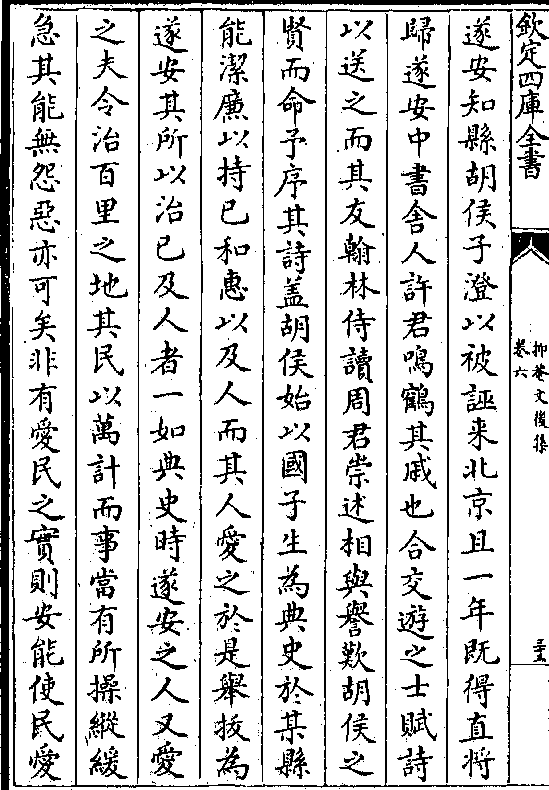 欽定四庫全書
抑菴文後集
卷六
三五
遂安知縣胡侯子澄以被誣来北京且一年既得直將
歸遂安中書舍人許君鳴鶴其戚也合交遊之士賦詩
以送之而其友翰林侍讀周君崇述相與譽歎胡侯之
賢而命予序其詩盖胡侯始以國子生為典史於某縣
能潔廉以持已和惠以及人而其人愛之於是舉拔為
遂安其所以治已及人者一如典史時遂安之人又愛
之夫令治百里之地其民以萬計而事當有所操縱緩
急其能無怨惡亦可矣非有愛民之實則安能使民愛